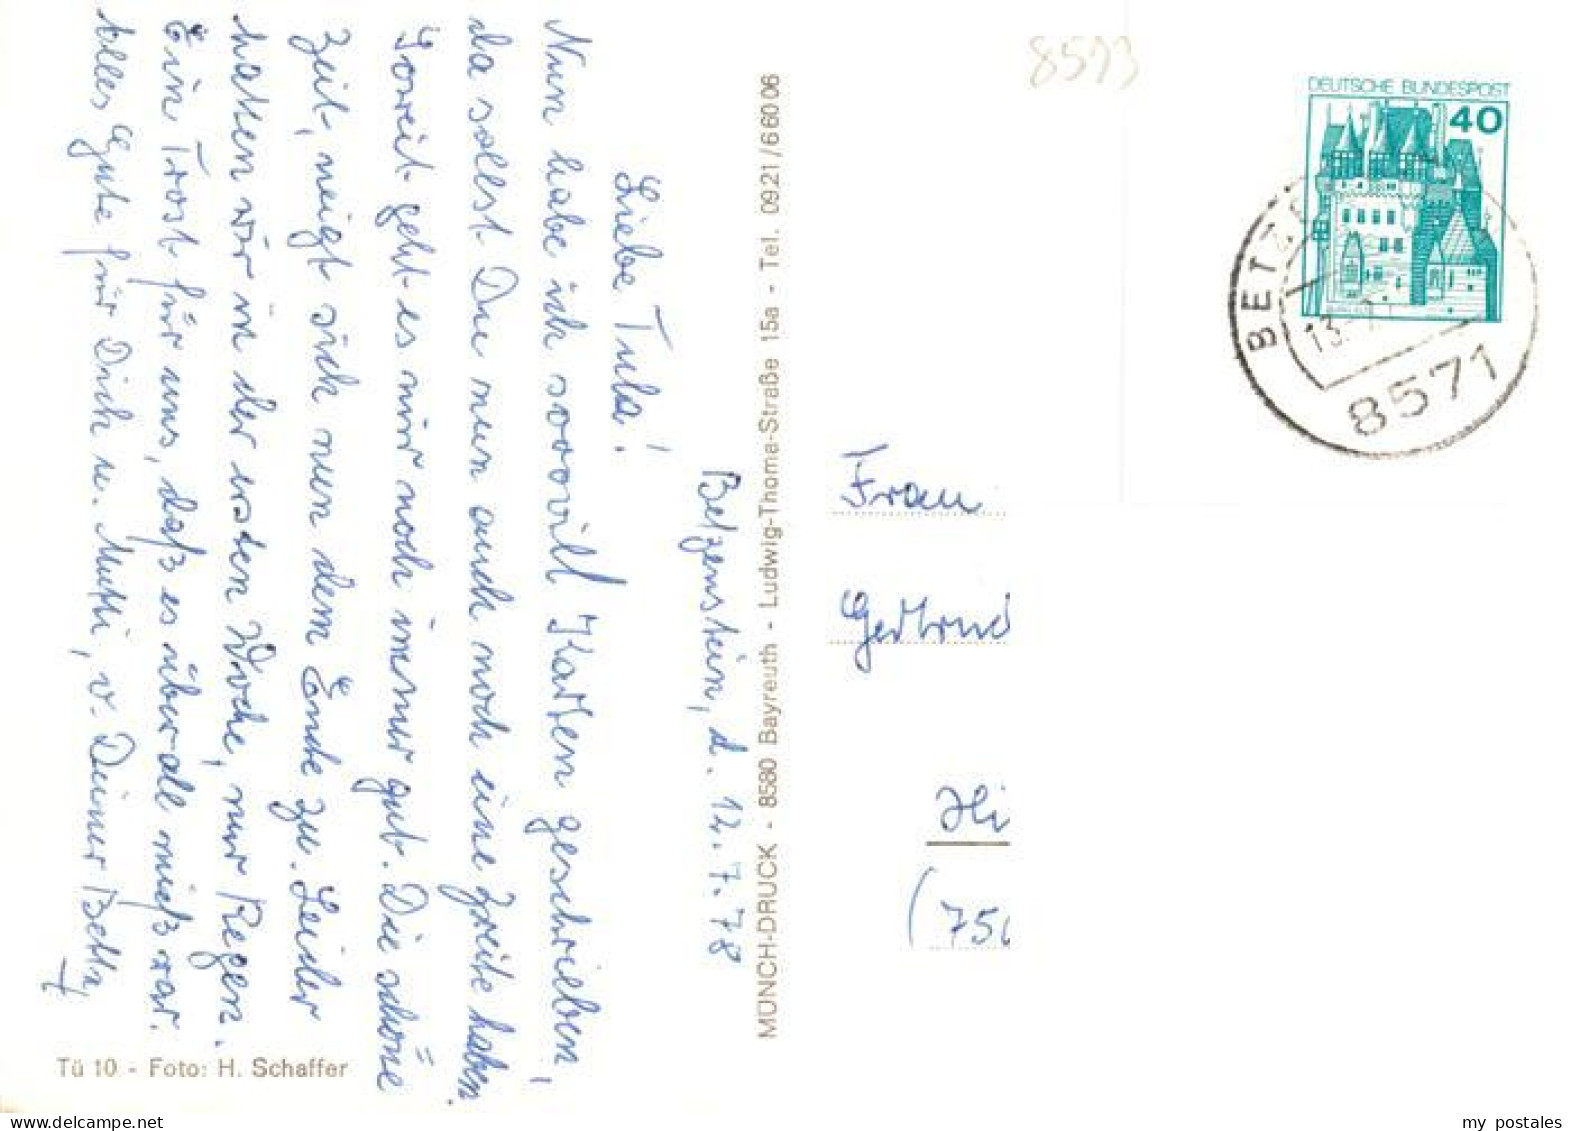 Betzenstein, d. 12.7.78
Liebe Tula!
Nun habe ich soovill Karten geschrieben,
da sollst Du nun auch noch eine zweite haben.
Soweit geht es mir noch immer gut. Die schöne
Zeit, neigt sich nun dem Ende zu. Leider
hatten wir in der ersten Woche, nur Regen.
Ein Trost für uns, daß es überall mieß war.
Alles Gute für Dich u. Mutti, v. Deiner Betty
Tü 10 - Foto: H. Schaffer
MÜNCH-DRUCK - 8580 Bayreuth - Ludwig-Thoma-Straße 15a - Tel. 0921/66006
8593
DEUTSCHE BUNDESPOST
40
BETZE
13.-7
8571
Frau
Gertrud
Hi
(750
www.delcampe.net
my_postales